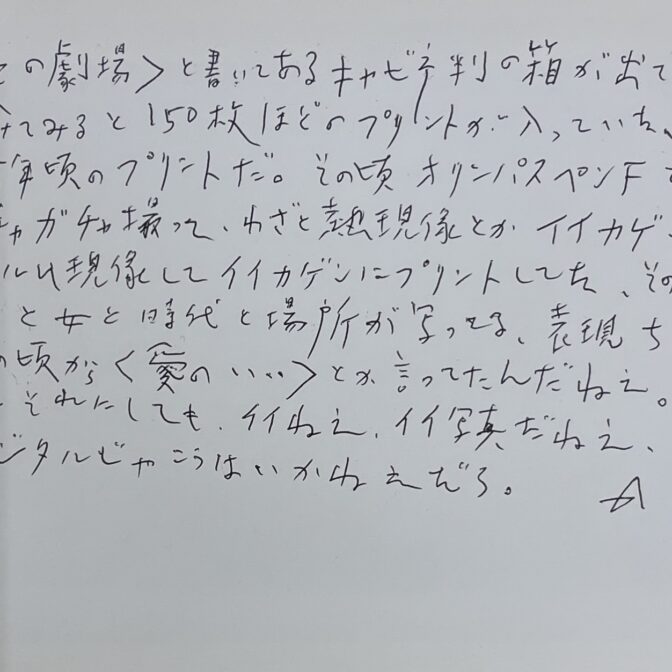 の劇場〉と書いてあるキャビネ判の箱が出て
てみると150枚ほどのプリントが入っていた、
年頃のプリントだ。その頃オリンパスペンF
ャガチャ撮って、わざと熱現像とかイイカゲ
ル的現像してイイカゲンにプリントしてた、その
と女と時代と場所が写ってる、表現ち
頃から〈愛のい…〉とか言ってたんだねェ。
それにしても、イイねェ、イイ写真だねェ、
ジタルじゃこうはいかねェだろ。
A